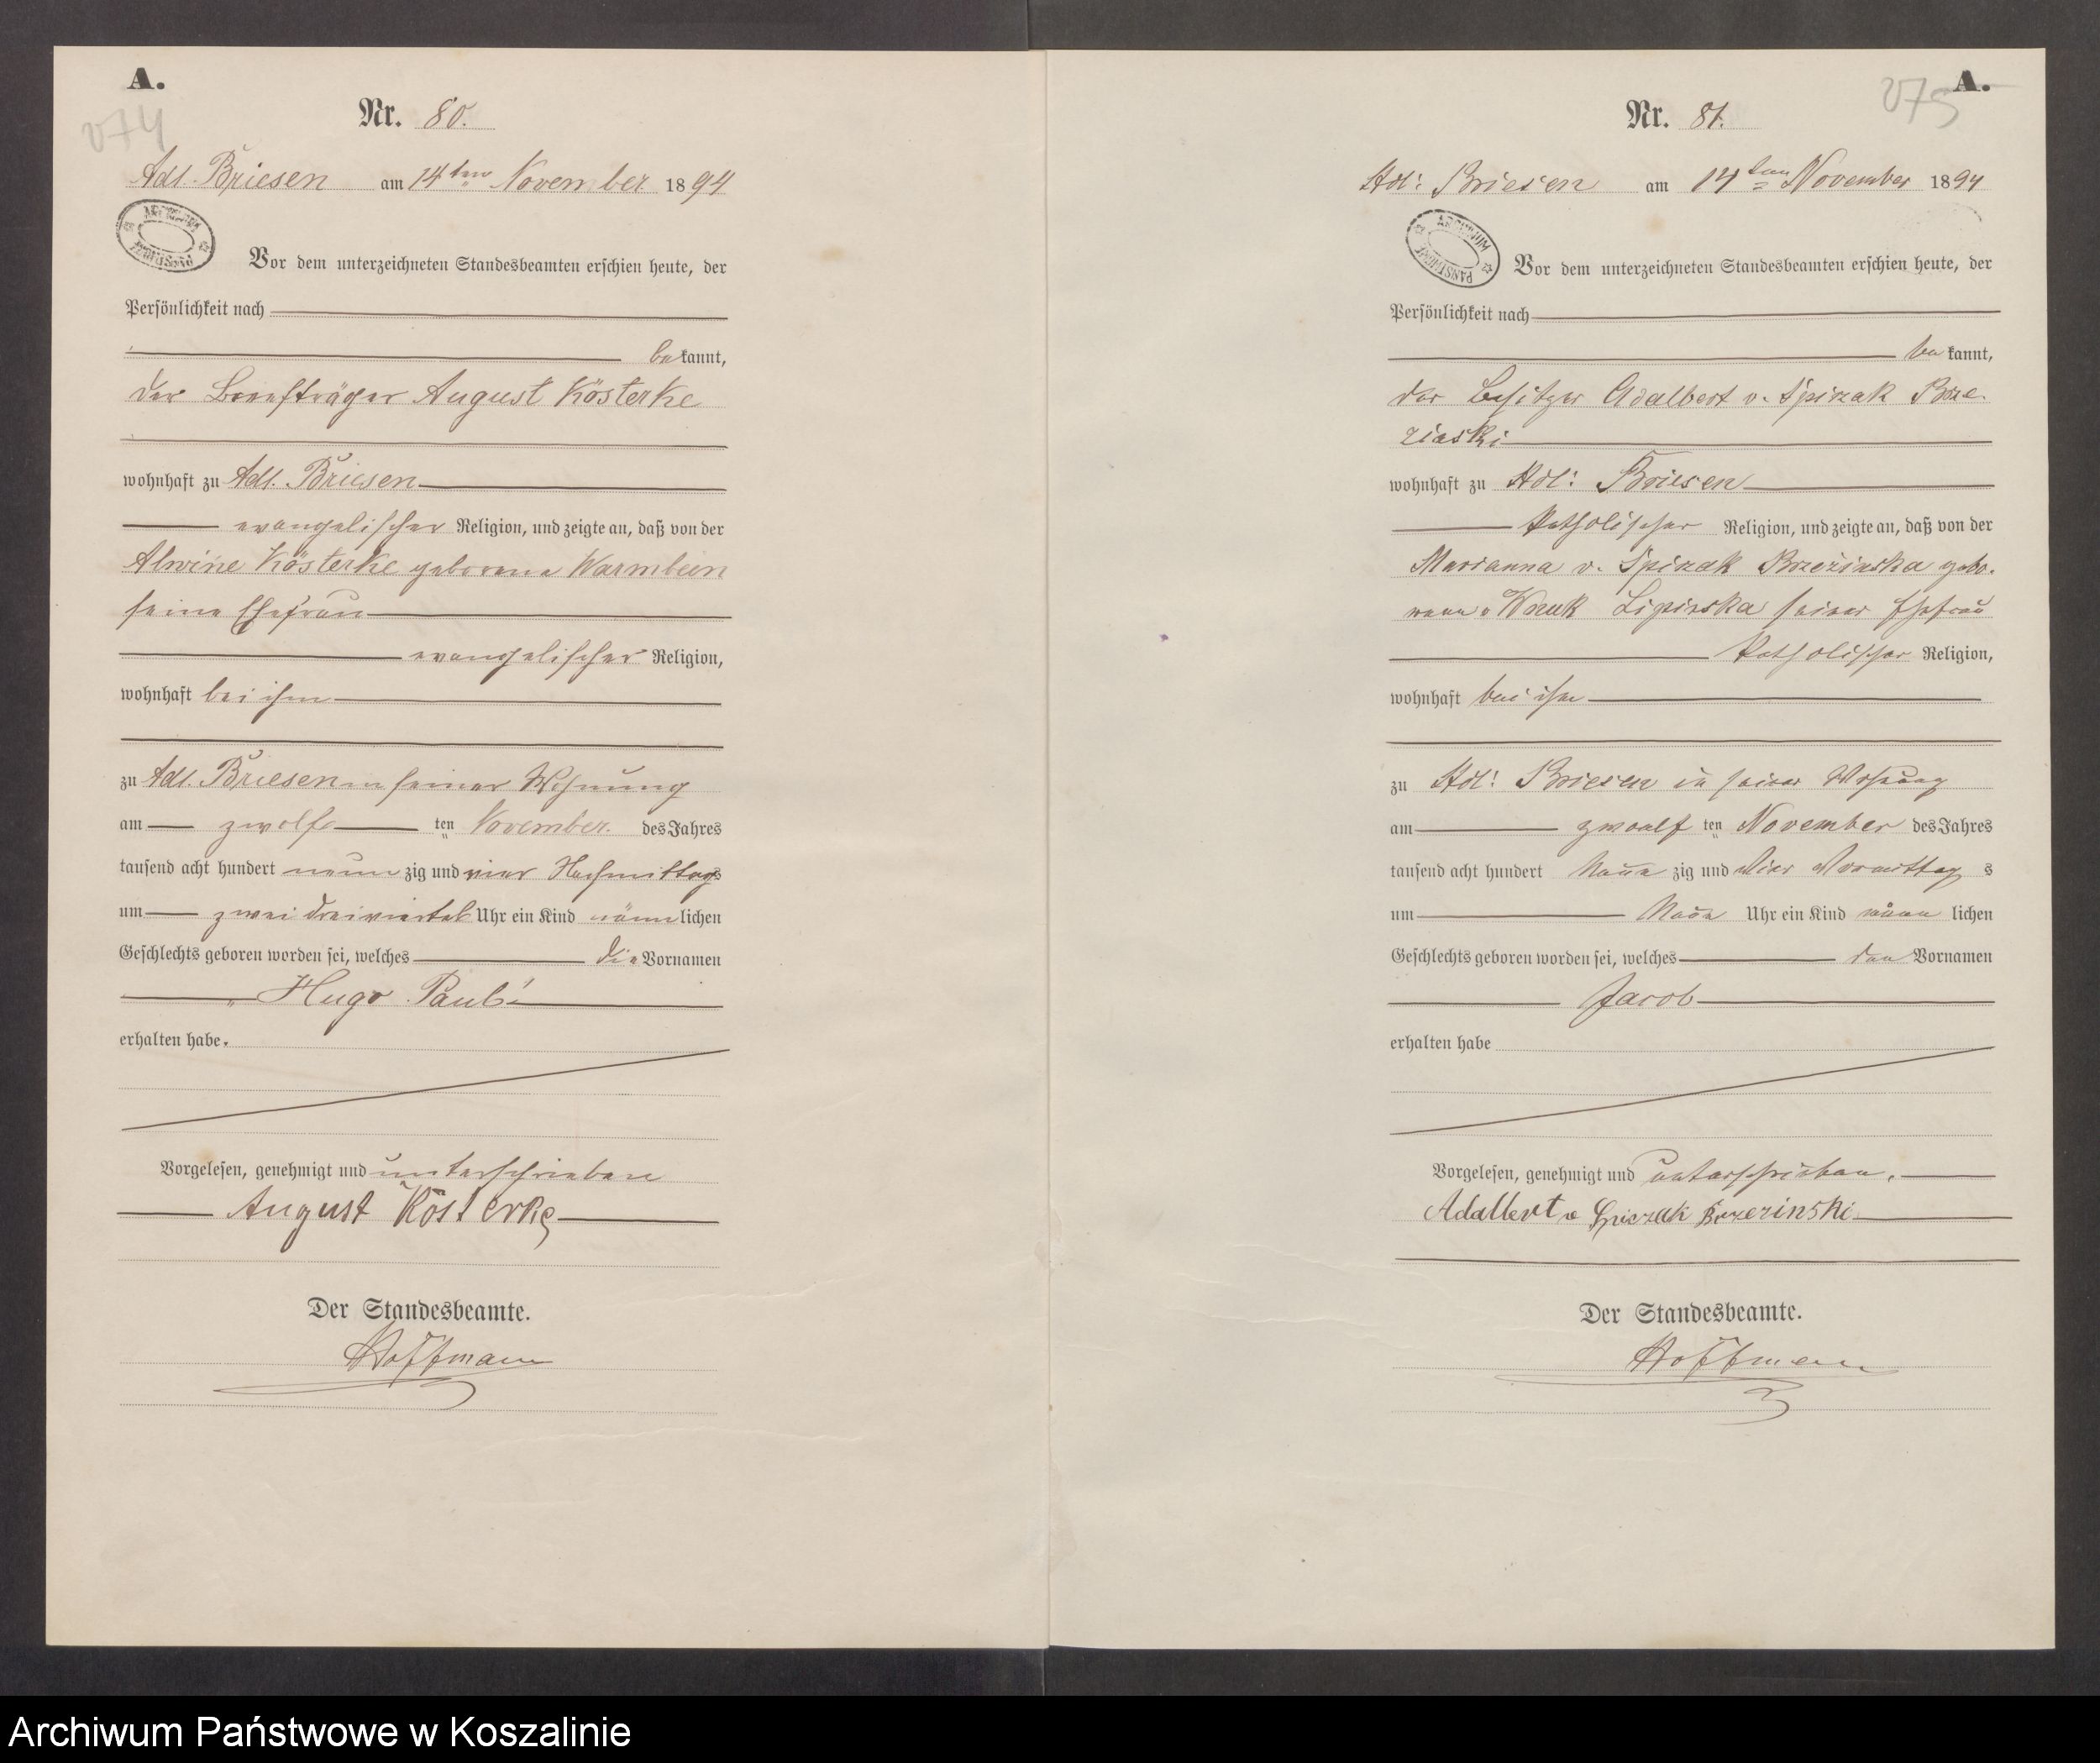 A.
074
Nr. 80.
Adl. Briesen am 14ten November 1894
Vor dem unterzeichneten Standesbeamten erschien heute, der
Persönlichkeit nach
bekannt,
der Briefträger August Kösterke
wohnhaft zu Adl. Briesen
evangelischer Religion, und zeigte an, daß von der
Alwine Kösterke geborene Warmbein
seine Ehefrau
evangelischer Religion,
wohnhaft bei ihm
zu Adl. Briesen in seiner Wohnung
am zwölften November des Jahres
tausend acht hundert neunzig und vier Nachmittags
um zwei dreiviertel Uhr ein Kind männlichen
Geschlechts geboren worden sei, welches die Vornamen
„Hugo Paul“
erhalten habe.
Vorgelesen, genehmigt und unterschrieben
August Kösterke
Der Standesbeamte.
Hoffmann
A.
075
Nr. 81.
Adl: Briesen am 14ten November 1894
ARCHIWUM PAŃSTWOWE
Vor dem unterzeichneten Standesbeamten erschien heute, der
Persönlichkeit nach
bekannt,
der Besitzer Adalbert v. Spizak Brze-
zinski
wohnhaft zu Adl: Briesen
katholischer Religion, und zeigte an, daß von der
Marianna v. Spizak Brzezinska gebo-
rene v Wnuk Lipinska seiner Ehefrau
katholischer Religion,
wohnhaft bei ihm
zu Adl: Briesen in seiner Wohnung
am zwoelften November des Jahres
tausend acht hundert Neunzig und Vier Vormittags
um Neun Uhr ein Kind männlichen
Geschlechts geboren worden sei, welches den Vornamen
Jacob
erhalten habe
Vorgelesen, genehmigt und unterschrieben.
Adalbert v Spiczak Brzezinski
Der Standesbeamte.
Hoffmann
Archiwum Państwowe w Koszalinie